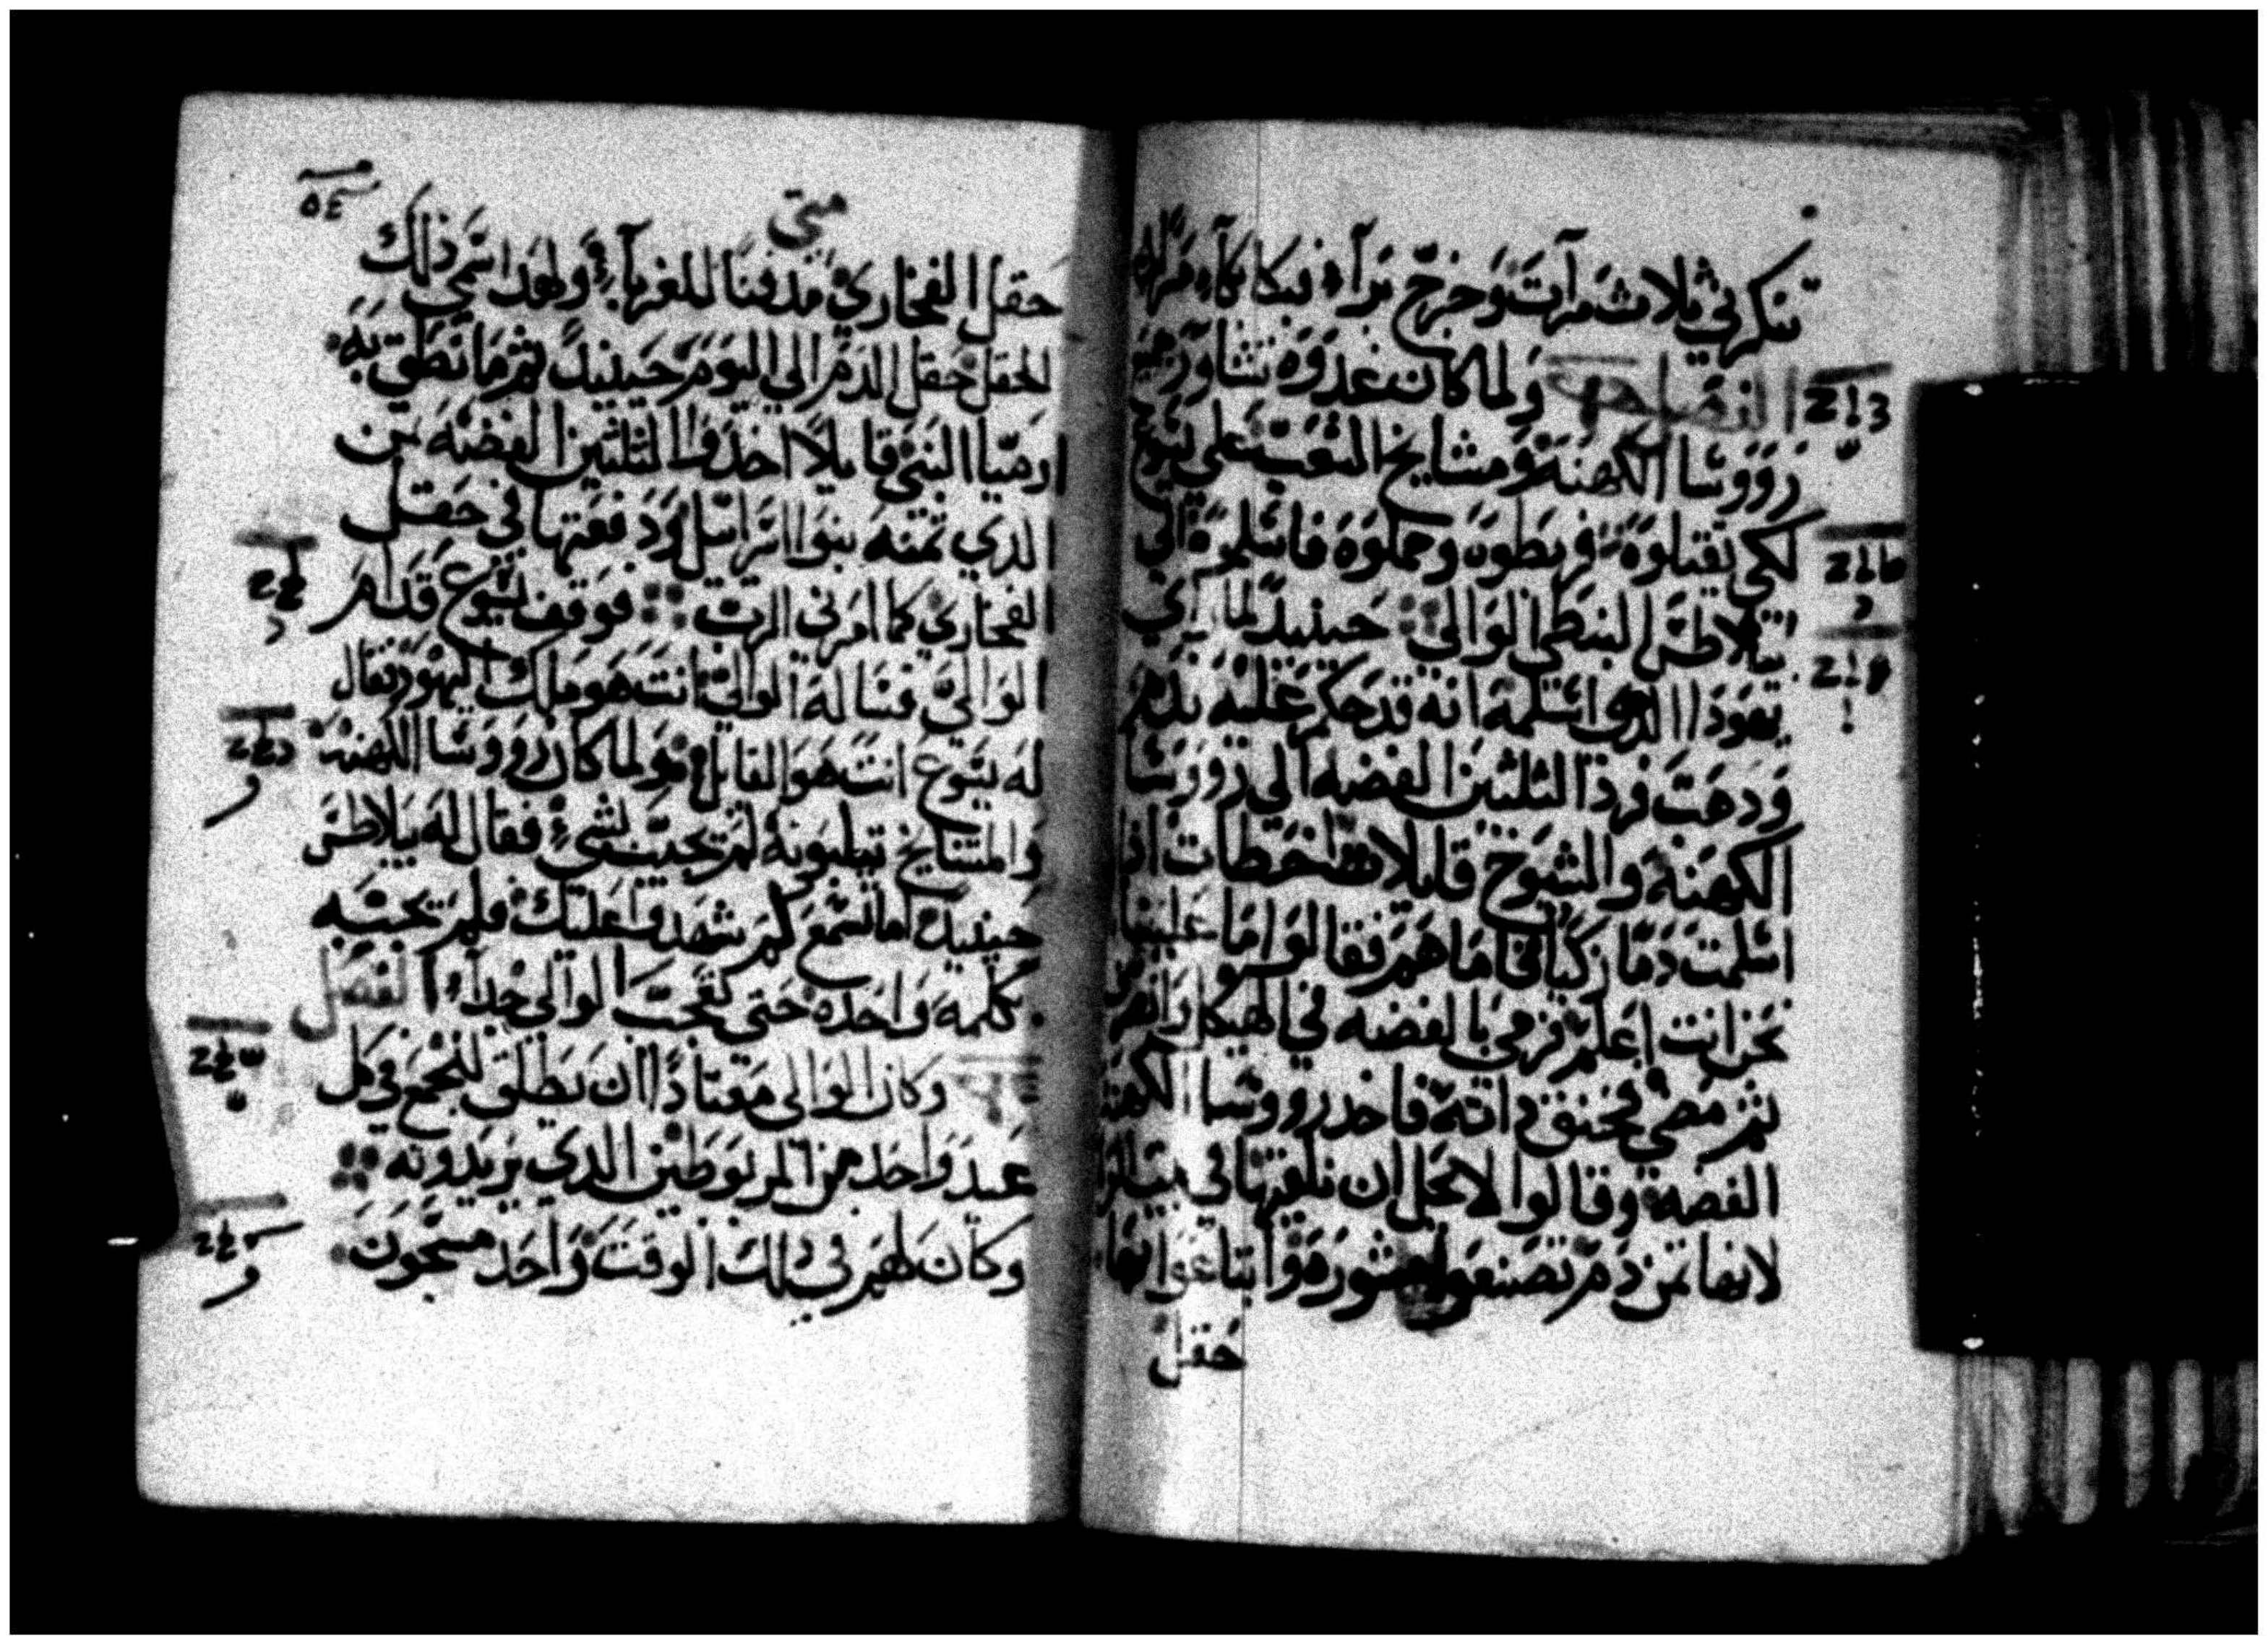 تنكرني ثلاث مرآت وخرج برآ فبكا بكآء مرا
الفصل ولما كان غدوه تشاور جميع
رووسا الكهنة ومشايخ الشعب على يسوع
لكي يقتلوه فربطوه وحملوه فاسلموه الي
بيلاطس البنطي الوالي حينيد لما راي
يهودا الذي اسلمه انه قد حكم عليه ندم
ودهب فرد الثلثين الفضه الي رووسا
الكهنة والشيوخ قايلا اخطات اذ
اسلمت دما زكيا فاما هم فقالوا ما علينا
نحن انت اعلم فرمي بالفضه في الهيكل وانصرف
ثم مضي فخنق داته فاخد رووسا الكهنة
الفضة وقالوا لا يحل ان نلقيها في بيت
لانها ثمن دم فصنعوا مشوره وابتاعوا بها
حقل
متي
٥٤
حقل الفخاري مدفنا للغربآء ولهدا سمي ذلك
الحقل حقل الدم الي اليوم حينيد تم ما نطق به
ارميا النبي قايلا اخدوا الثلثين الفضة من
الدي ثمنه بنوا اسراييل ودفعتها في حقل
الفخاري كما امرني الرب فوقف يسوع قدام
الوالي فساله الوالي انت هو ملك اليهود فقال
له يسوع انت هو القايل ولما كان رووسا الكهنة
والمشايخ تيلبونه لم تجيب بشيء فقال له بيلاطس
حينيد اما تسمع كم شهدوا عليك فلم يجبه
بكلمه واحده حتي تعجب الوالي جدآ الفصل
وكان الوالي معتادا ان يطلق لجمع في كل
عيد واحد من المربوطين الدي يريدونه
وكان لهم في دلك الوقت واحد مسجون